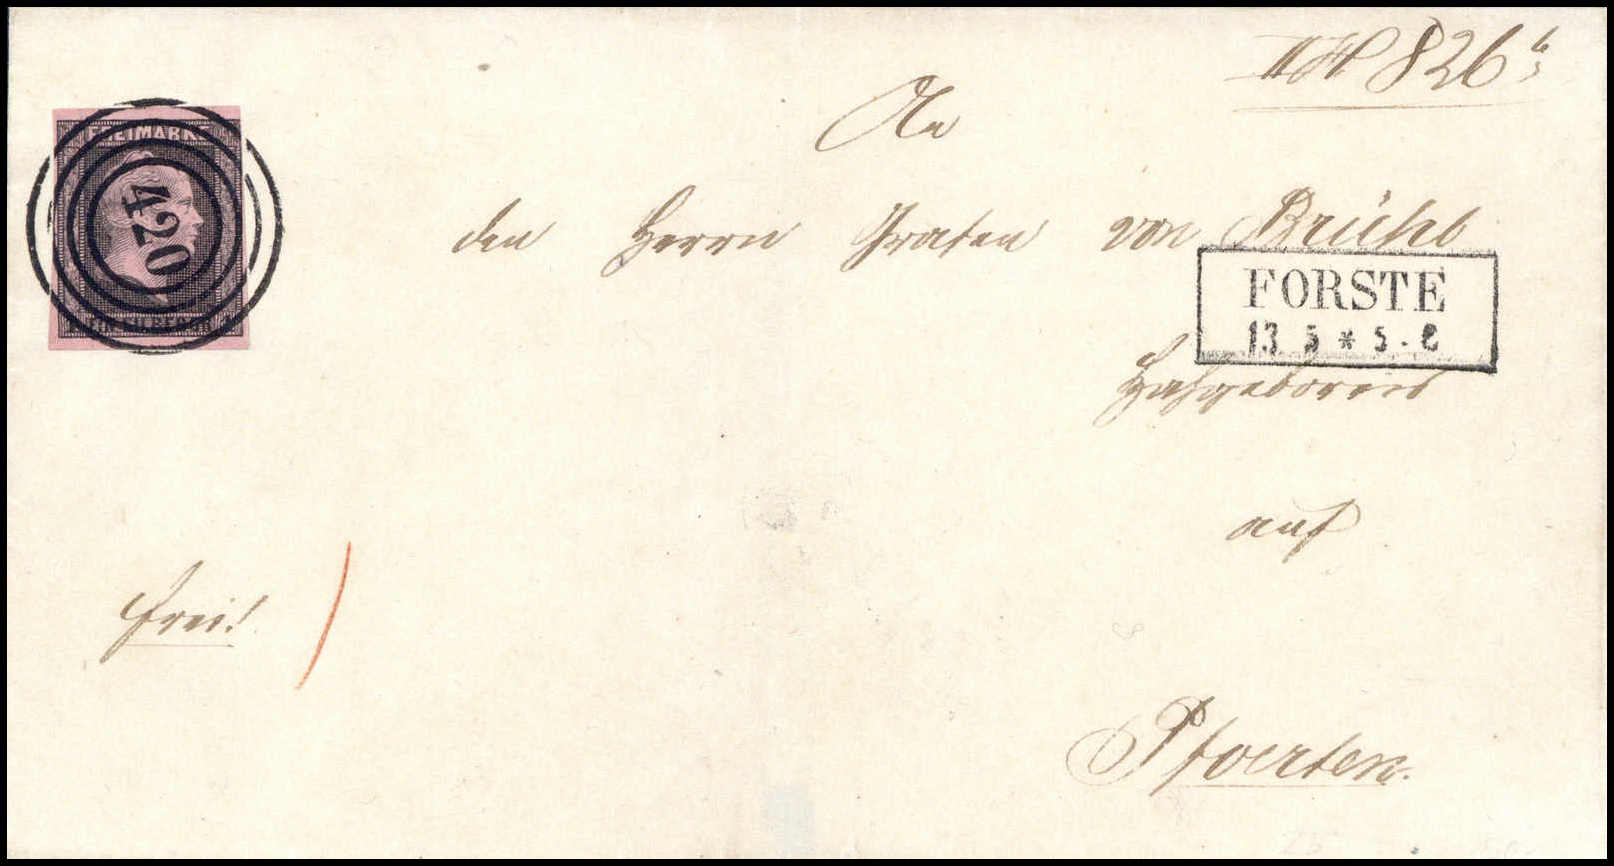 826
An
FREIMARKE
420
den Herrn Grafen von Brühl
FORSTE
13 5 * 5 - 8
EIN SILBERGR.
Hochgeboren
auf
frei!
Pfoerten.